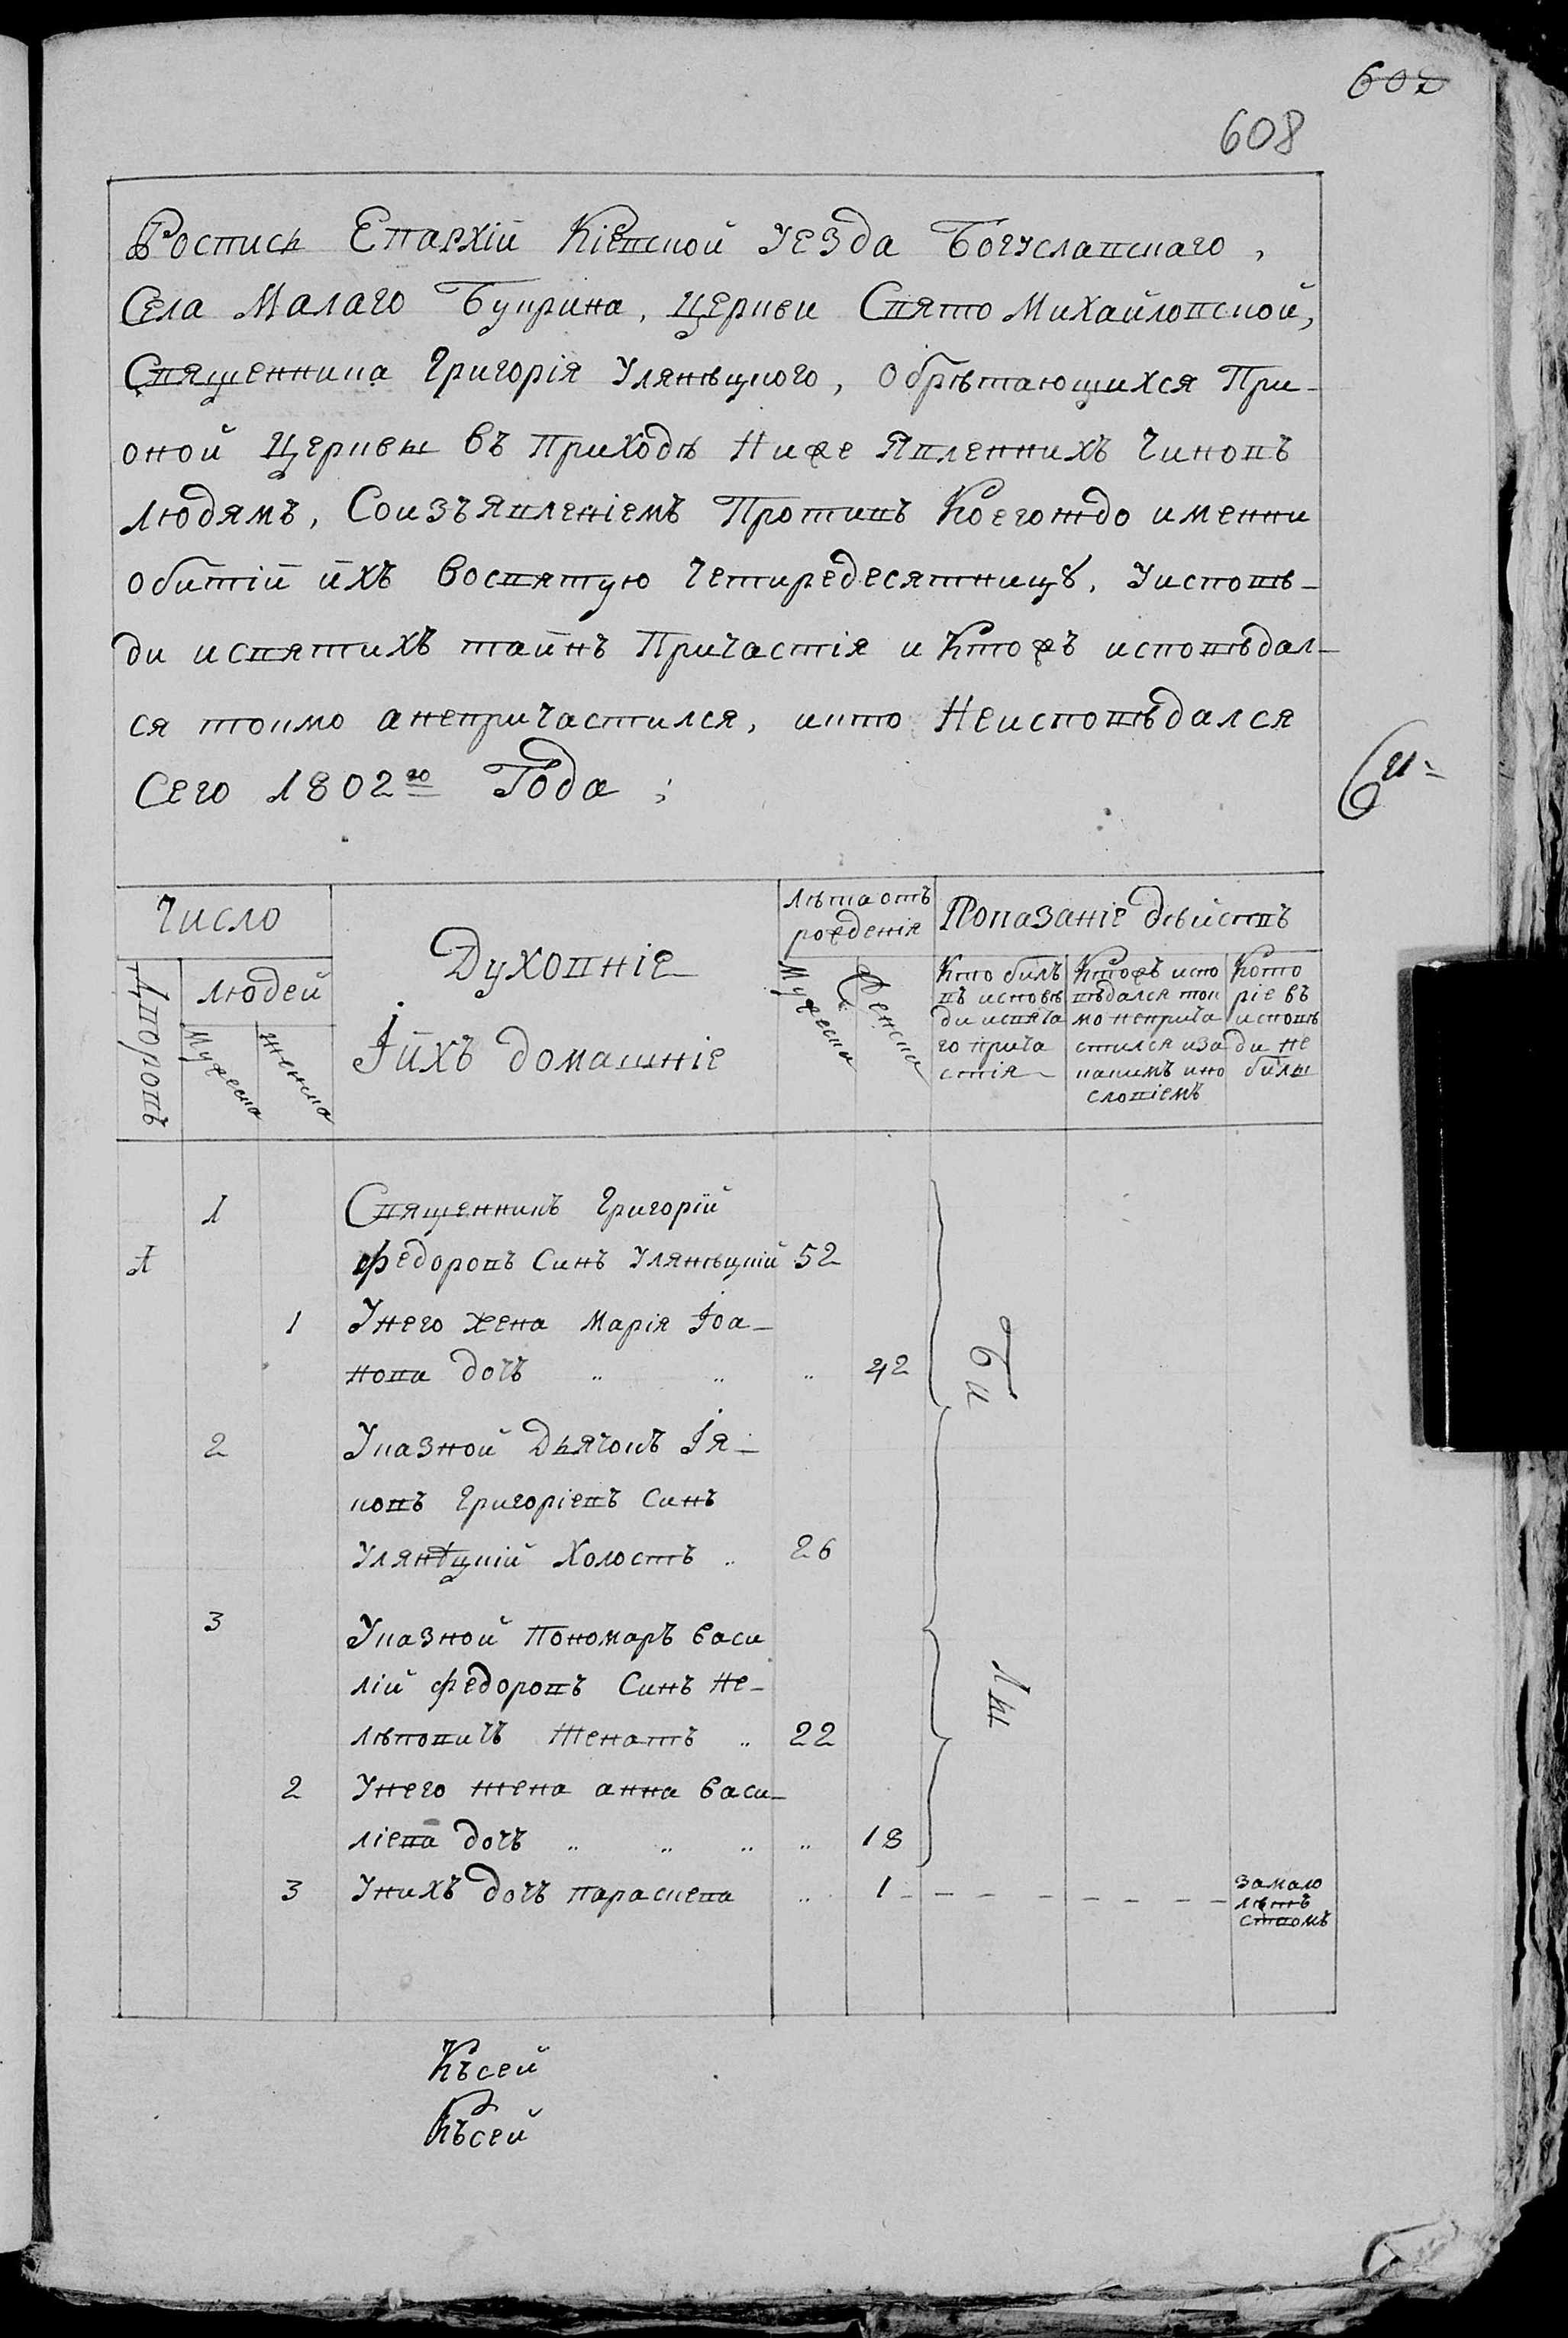 602
608
Роспись Епархіи Кіевской Уезда Богуславскаго,
Села Малаго Букрина, Церкви Свято Михайловской,
Священника Григорія Улянѣцкого, обрѣтающихся При-
оной Церквы въ приходѣ Ниже явленнихъ Чиновъ
людямъ, Соизъявленіемъ Противъ Коегождо именни
обитіи ихъ восвятую Четиредесятницꙋ, Уисповѣ-
ди исвятихъ таинъ Причастія и Ктожъ исповѣдал-
ся токмо анепричастился, икто Неисповѣдался
Сего 1802го Года ;
Число
Духовніе
Лѣта отъ
рожденія
Показаніе дѣйствъ
Дворовъ
людей
Мужеска
Женска
Іихъ домашніе
Мужеска
Женска
Кто билъ
въ исповѣ
ди исвята
го прича
стія
Ктожъ испо
вѣдался ток
мо неприча
стился иза
какимъ ино
словіемъ
Кото
ріе въ
исповѣ
ди не
билы
1 Священникъ Григорій
1 Федоровъ Синъ Улянѣцкій 52
1 Унего жена Марія Іоа-
нова дочъ " " " 42
2 Указной Дьячокъ Ія-
ковъ Григоріевъ Синъ
Улянѣцкій Холостъ " 26
3 Указной Пономаръ Васи
лій Федоровъ Синъ Не-
лѣповичъ Женатъ " 22
2 Унего жена анна Васи-
ліева дочъ " " " " 18
3 Унихъ дочъ параскева " 1 - - - - - - - -
Би
лы
Замало
лѣтъ
ствомъ
Късей
Късей